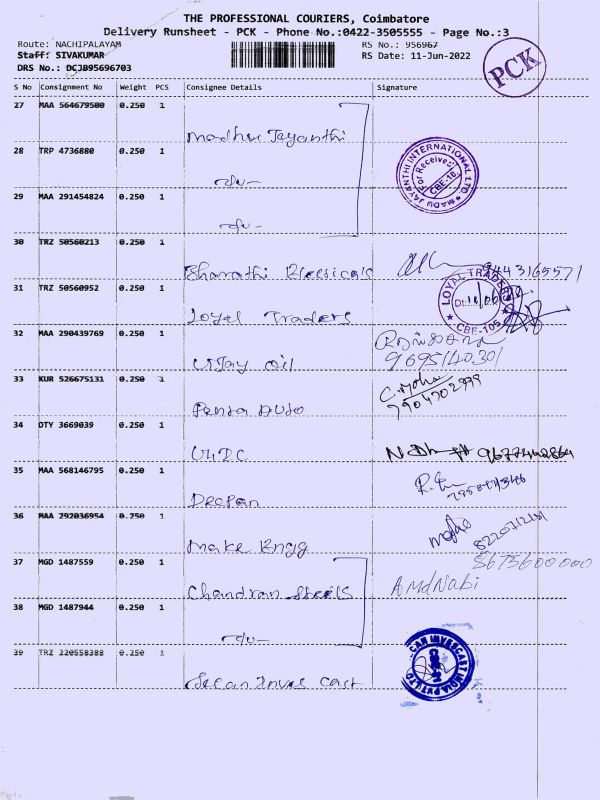 THE PROFESSIONAL COURIERS, Coimbatore
Delivery Runsheet - PCK - Phone No.:0422-3505555 - Page No.:3
Route: NACHIPALAYAM
RS No.: 956967
Staff: SIVAKUMAR
RS Date: 11-Jun-2022
DRS No.: DCJB95696703
PCK
S No Consignment No Weight PCS Consignee Details Signature
27 MAA 564679500 0.250 1
Madhu Jayanthi
28 TRP 4736880 0.250 1
MADU JAYANTHI INTERNATIONAL LTD.
CBE-10
29 MAA 291454824 0.250 1
30 TRZ 50560213 0.250 1
Bharathi Electricals
9443165571
31 TRZ 50560952 0.250 1
Loyal Traders
LOYAL TRADERS
CBE-105
32 MAA 290439769 0.250 1
Vijay oil
33 KUR 526675131 0.250 1
Penta Auto
34 OTY 3669039 0.250 1
9677442864
35 MAA 568146795 0.250 1
Deepan
36 MAA 292036954 0.250 1
Make Engg
8220712181
37 MGD 1487559 0.250 1
Chandran Steels
8675600000
A Md Nabi
38 MGD 1487944 0.250 1
39 TRZ 220558388 0.250 1
Decan Inves Cast